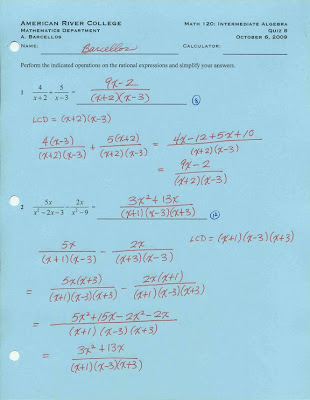 AMERICAN RIVER COLLEGE MATH 120: INTERMEDIATE ALGEBRA
MATHEMATICS DEPARTMENT QUIZ 8
A. BARCELLOS OCTOBER 6, 2009
NAME: Barcellos CALCULATOR:
Perform the indicated operations on the rational expressions and simplify your answers.
1 4/(x+2) + 5/(x−3) = (9x−2)/((x+2)(x−3)) (8)
LCD = (x+2)(x−3)
4(x−3)/((x+2)(x−3)) + 5(x+2)/((x+2)(x−3)) = (4x−12+5x+10)/((x+2)(x−3))
= (9x−2)/((x+2)(x−3))
2 5x/(x²−2x−3) − 2x/(x²−9) = (3x²+13x)/((x+1)(x−3)(x+3)) (12)
5x/((x+1)(x−3)) − 2x/((x+3)(x−3)) LCD = (x+1)(x−3)(x+3)
= 5x(x+3)/((x+1)(x−3)(x+3)) − 2x(x+1)/((x+1)(x−3)(x+3))
= (5x²+15x−2x²−2x)/((x+1)(x−3)(x+3))
= (3x²+13x)/((x+1)(x−3)(x+3))